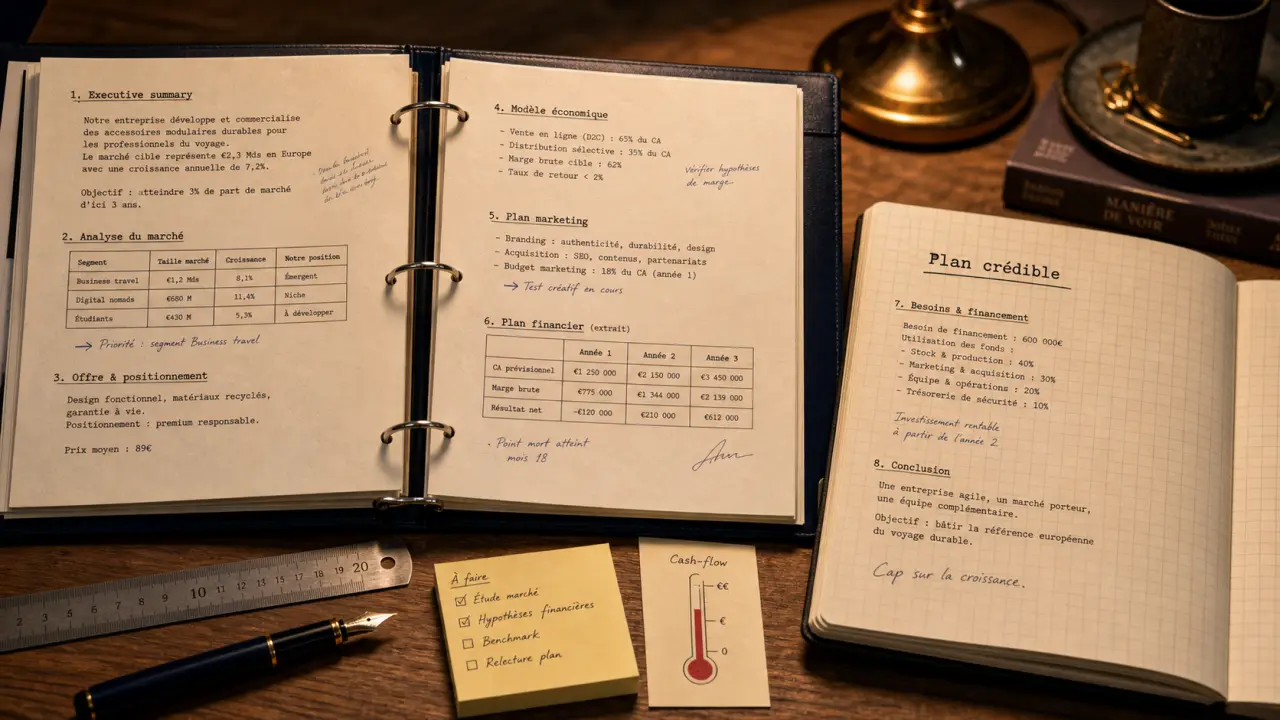 1. Executive summary
Notre entreprise développe et commercialise
des accessoires modulaires durables pour
les professionnels du voyage.
Le marché cible représente €2,3 Mds en Europe
avec une croissance annuelle de 7,2%.
Objectif : atteindre 3% de part de marché
d'ici 3 ans.
2. Analyse du marché
Segment Taille marché Croissance Notre position
Business travel €1,2 Mds 8,1% Émergent
Digital nomads €680 M 11,4% Niche
Étudiants €430 M 5,3% À développer
→ Priorité : segment Business travel
3. Offre & positionnement
Design fonctionnel, matériaux recyclés,
garantie à vie.
Positionnement : premium responsable.
Prix moyen : 89€
4. Modèle économique
- Vente en ligne (D2C) : 65% du CA
- Distribution sélective : 35% du CA
- Marge brute cible : 62%
- Taux de retour < 2%
Vérifier hypothèses
de marge
5. Plan marketing
- Branding : authenticité, durabilité, design
- Acquisition : SEO, contenus, partenariats
- Budget marketing : 18% du CA (année 1)
→ Test créatif en cours
6. Plan financier (extrait)
Année 1 Année 2 Année 3
CA prévisionnel €1 250 000 €2 150 000 €3 450 000
Marge brute €775 000 €1 344 000 €2 139 000
Résultat net -€120 000 €210 000 €612 000
- Point mort atteint
mois 18
Plan crédible
7. Besoins & financement
Besoin de financement : 600 000€
Utilisation des fonds :
- Stock & production : 40%
- Marketing & acquisition : 30%
- Équipe & opérations : 20%
- Trésorerie de sécurité : 10%
Investissement rentable
à partir de l'année 2
8. Conclusion
Une entreprise agile, un marché porteur,
une équipe complémentaire.
Objectif : bâtir la référence européenne
du voyage durable.
Cap sur la croissance.
À faire
Étude marché
Hypothèses financières
Benchmark
Relecture plan
Cash-flow
€€
€
0
MANIÈRE
DE VOIR
2 3 4 5 6 7 8 9 10 11 12 13 14 15 16 17 18 19 20